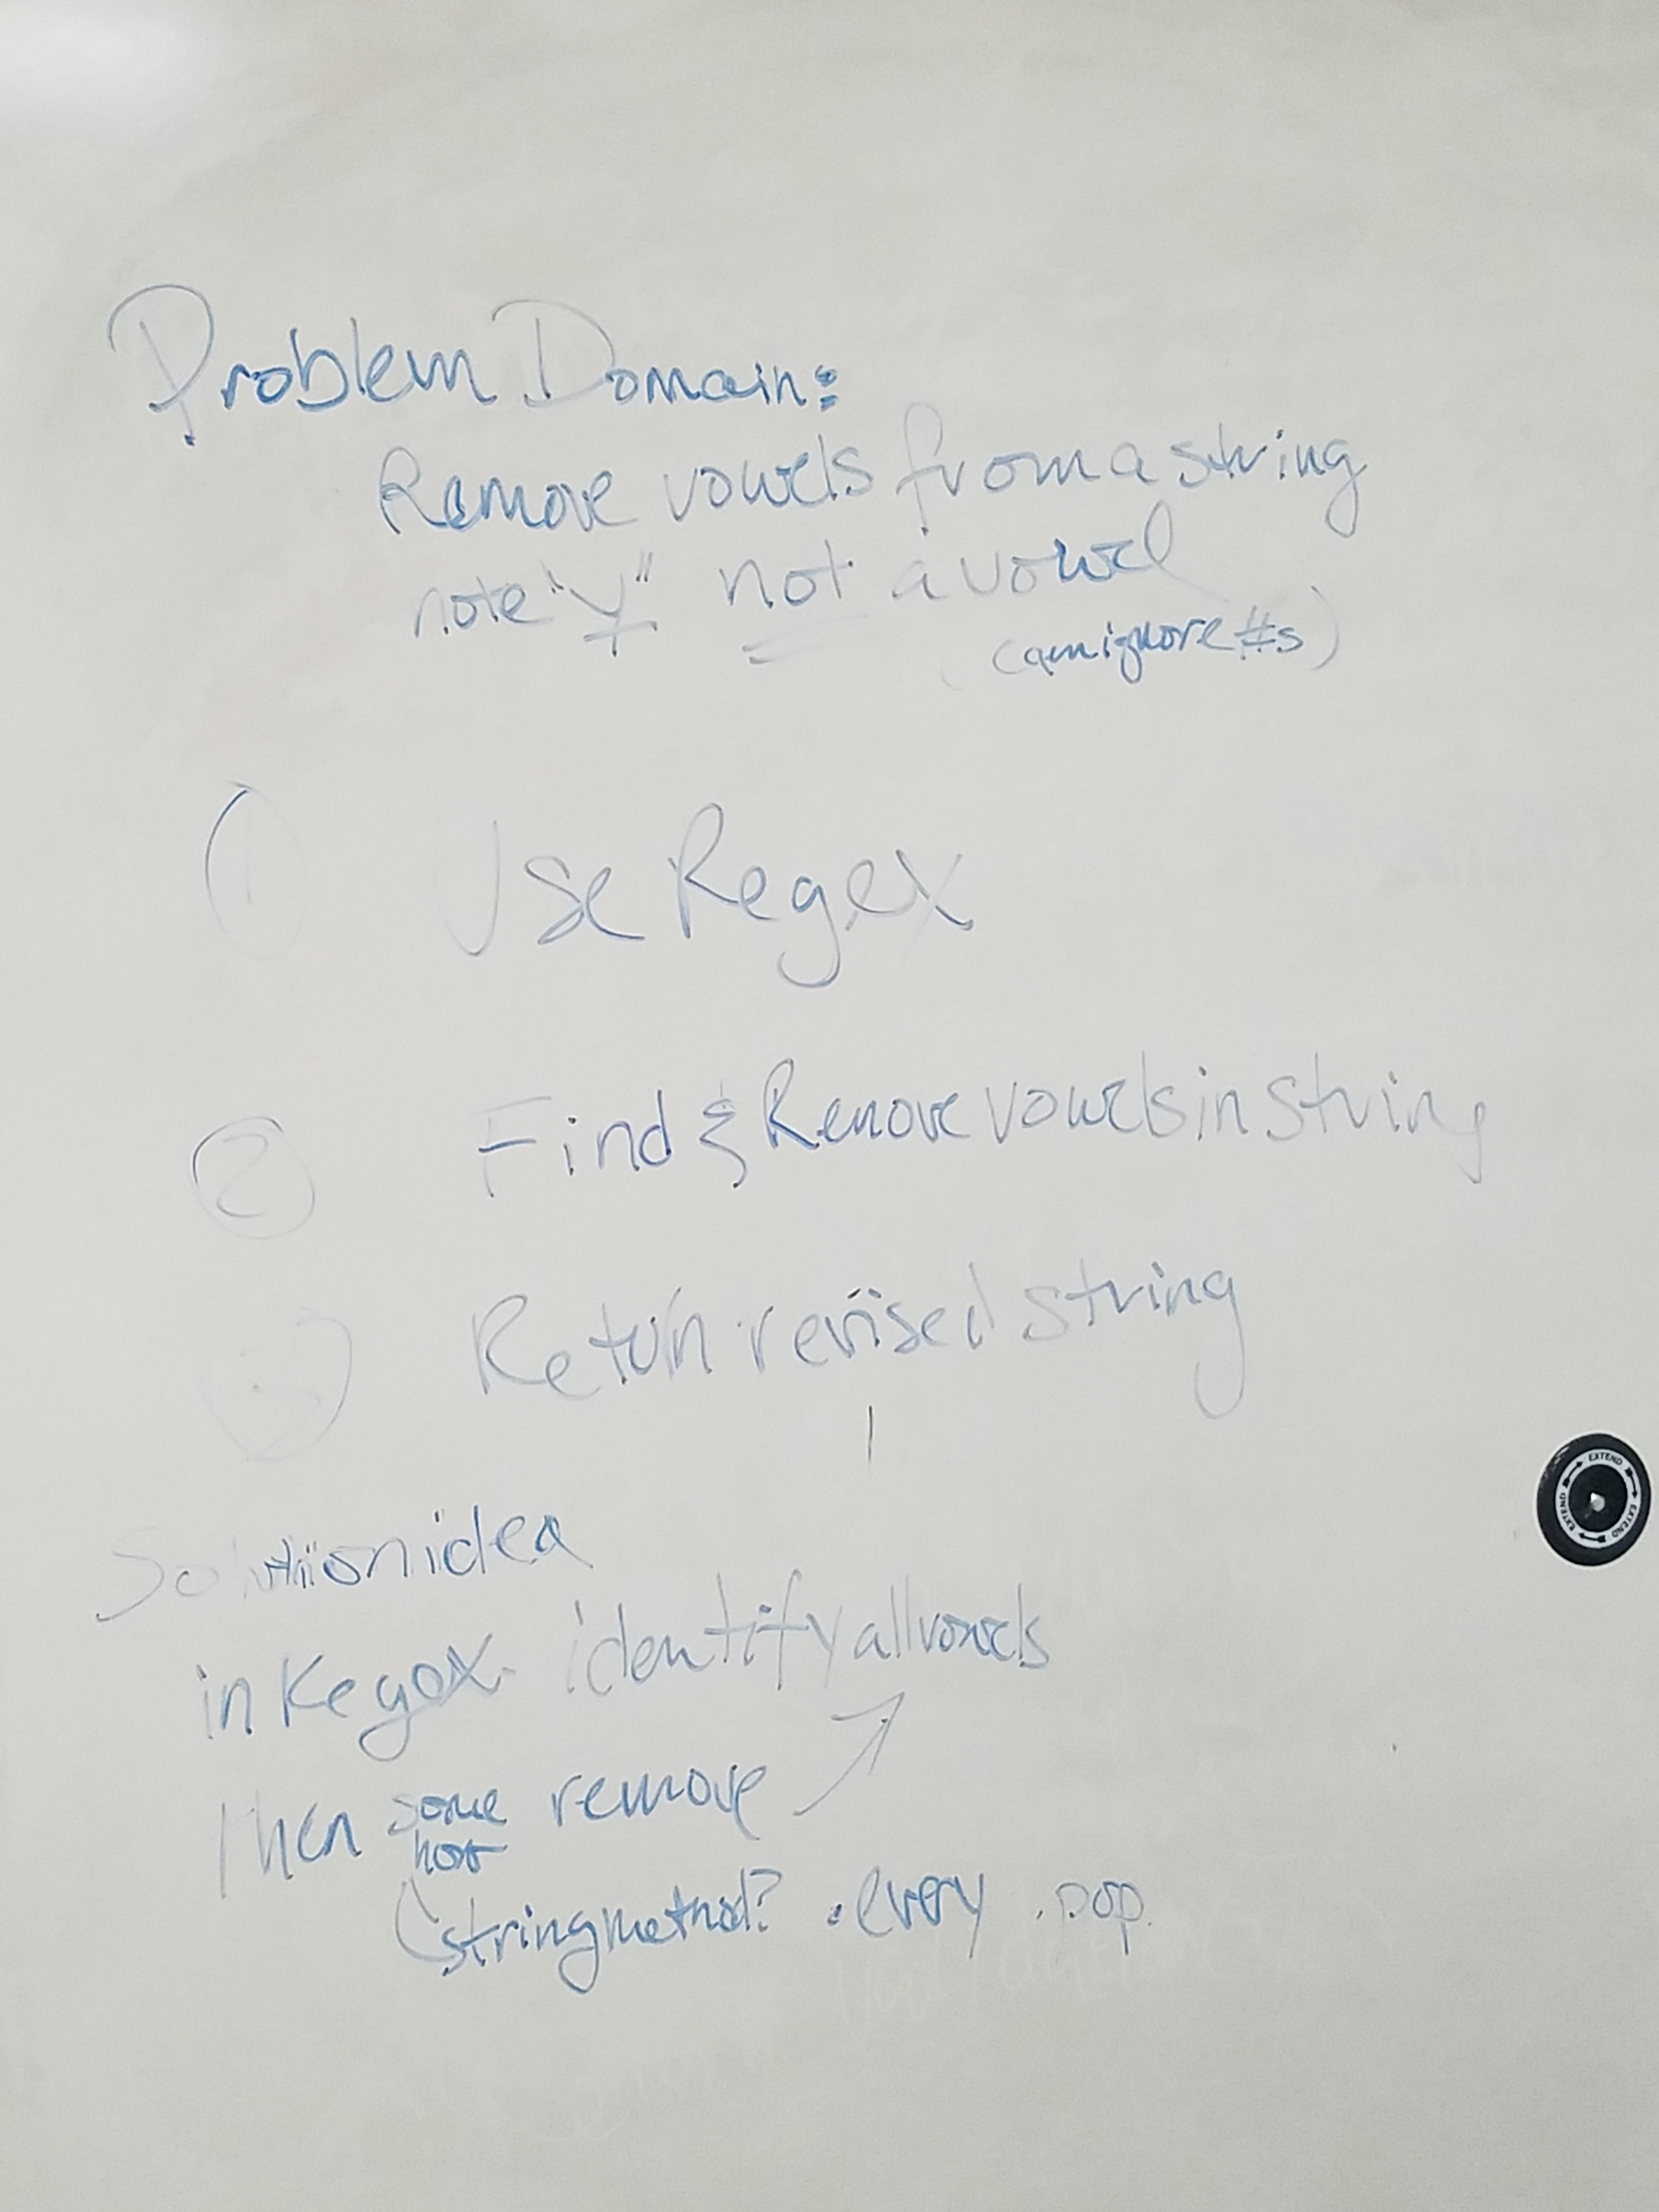 Problem Domain:
Remove vowels from a string
note "y" not a vowel
(am ignore #s)
1 Use Regex
2 Find & Remove vowels in string
Return revised string
Solution idea
in Regex identify all vowels
Then some how remove
(string method? .every .pop
EXTEND EXTEND EXTEND EXTEND